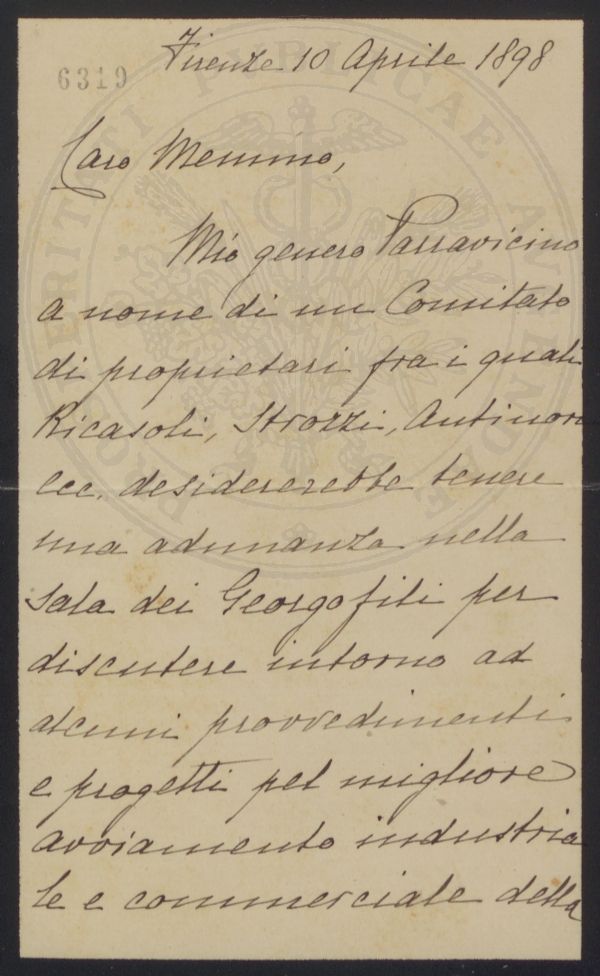 PROSPERITATI PUBLICAE AUGENDAE
6319
Firenze 10 Aprile 1898
Caro Memmo,
Mio genero Parravicino
a nome di un Comitato
di proprietari fra i quali
Ricasoli, Strozzi, Antinori
ecc. desidererebbe tenere
una adunanza nella
sala dei Georgofili per
discutere intorno ad
alcuni provvedimenti
e progetti pel migliore
avviamento industria
le e commerciale della